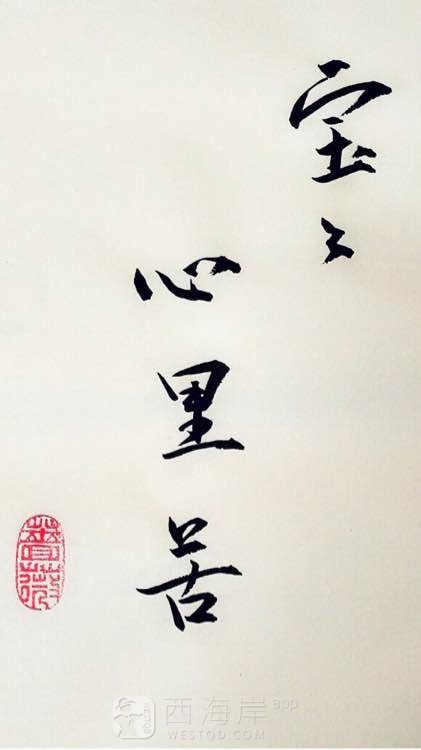 宝々
心里苦
西海岸app
WESTQD.COM